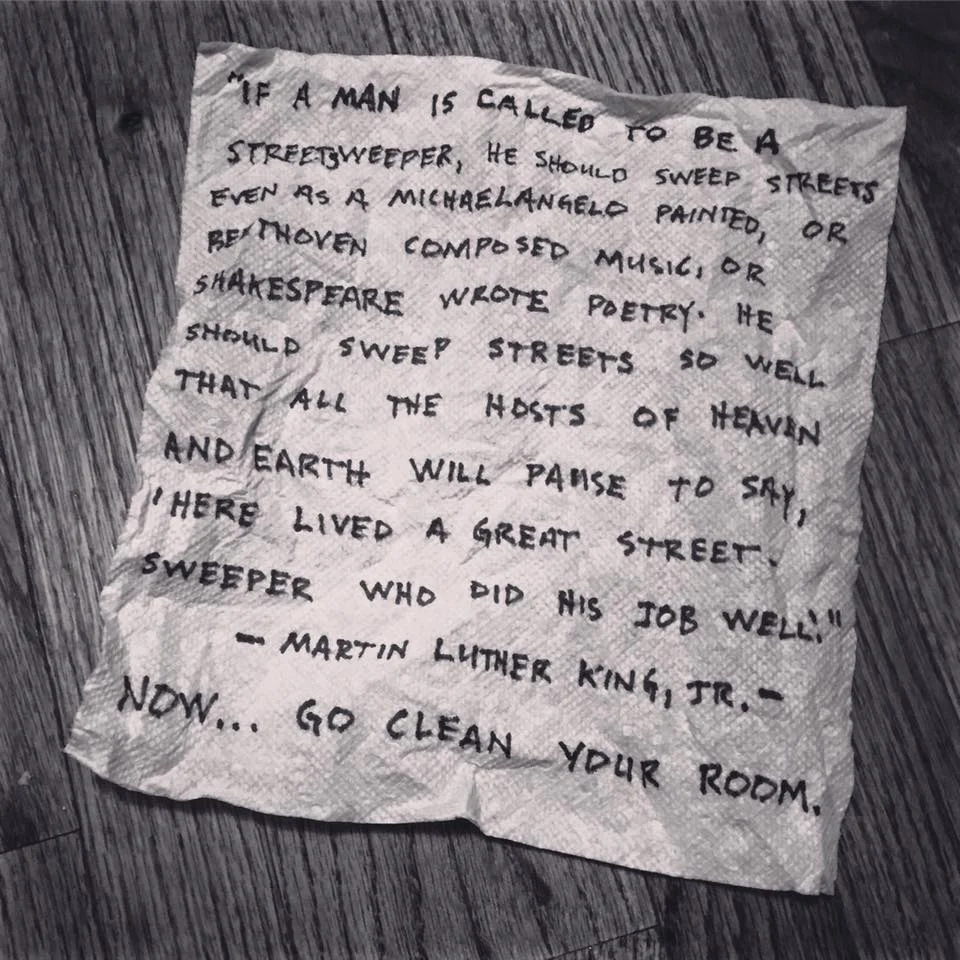 "IF A MAN IS CALLED TO BE A
STREETSWEEPER, HE SHOULD SWEEP STREETS
EVEN AS A MICHAELANGELO PAINTED, OR
BEETHOVEN COMPOSED MUSIC, OR
SHAKESPEARE WROTE POETRY. HE
SHOULD SWEEP STREETS SO WELL
THAT ALL THE HOSTS OF HEAVEN
AND EARTH WILL PAUSE TO SAY,
'HERE LIVED A GREAT STREET-
SWEEPER WHO DID HIS JOB WELL.'"
- MARTIN LUTHER KING, JR. -
NOW... GO CLEAN YOUR ROOM.